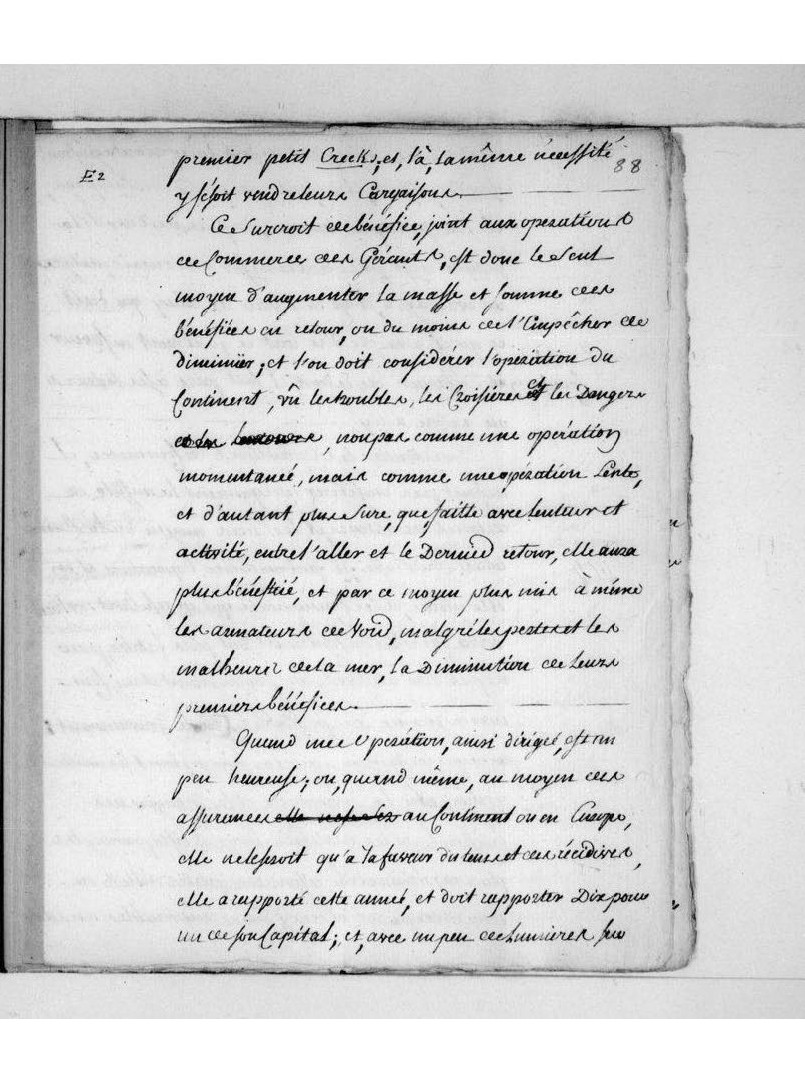 88
E2
premier petit Creeks, et, là, la même nécessité
y fesoit vendre leurs Cargaisons.
Ce Surcroit de bénéfice, joint aux opérations
de Commerce des Gérants, est donc le Seul
moyen d'augmenter la masse et somme des
bénéfices en retour, ou du moins de l'Empêcher de
diminüer; et l'on doit considérer l'opération du
Continent, vû les troubles, les Croisieres et les Dangers
, non pas comme une opération
momentaneé, mais comme une opération Lente,
et d'autant plus Sure, que faitte avec lenteur et
activité, entre l'aller et le Dernier retour, elle aura
plus bénéficié, et par ce moyen plus mis à même
les armateurs de Nord, malgré les pertes et les
malheurs de la mer, la Diminution de leurs
premiers bénéfices.
Quand une Opération, ainsi dirigeé, est un
peu heureuse; ou, quand même, au moyen des
assurances au Continent ou en Europe,
elle ne le seroit qu'à la faveur du tems et des récidives,
elle a rapporté cette anneé, et doit rapporter Dix pour
un de son Capital; et, avec un peu de Lumieres sur